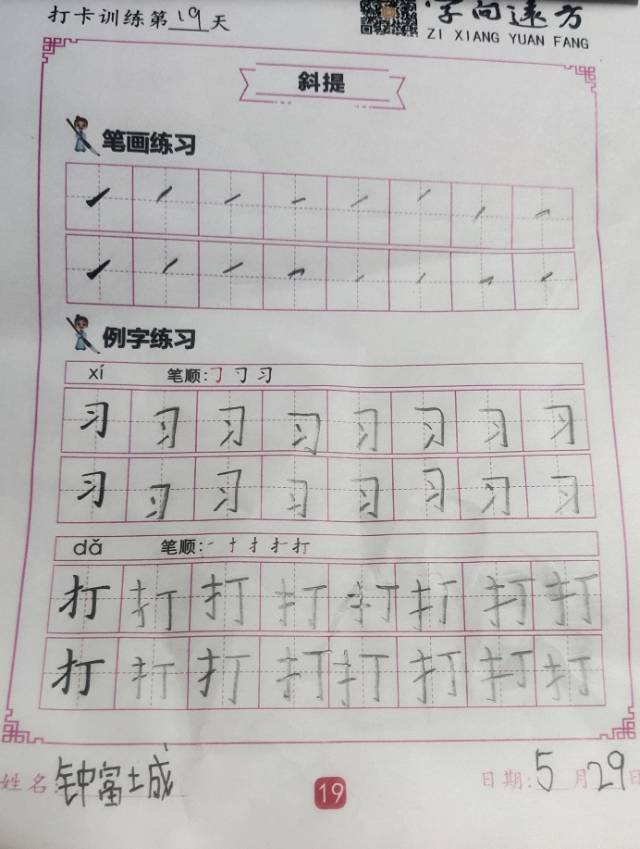 打卡训练第19天
字向远方
ZI XIANG YUAN FANG
斜提
笔画练习
例字练习
xí 笔顺:㇆ 刁 习
习 习 习 习 习 习 习 习
习 习 习 习 习 习 习 习
dǎ 笔顺:一 十 扌 扌 打
打 打 打 打 打 打 打 打
打 打 打 打 打 打 打 打
姓名:钟富城 日期:5月29日
19